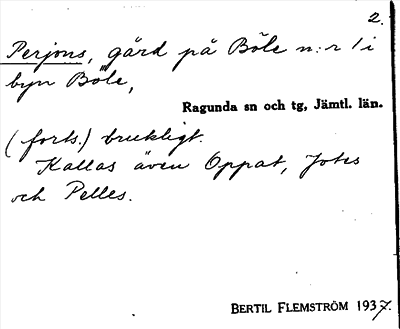 2.
Perjons, gård på Böle n:r 1 i
byn Böle,
Ragunda sn och tg, Jämtl. län.
(forts.) brukligt.
Kallas även Oppat, Jotes
och Pelles.
BERTIL FLEMSTRÖM 1937.